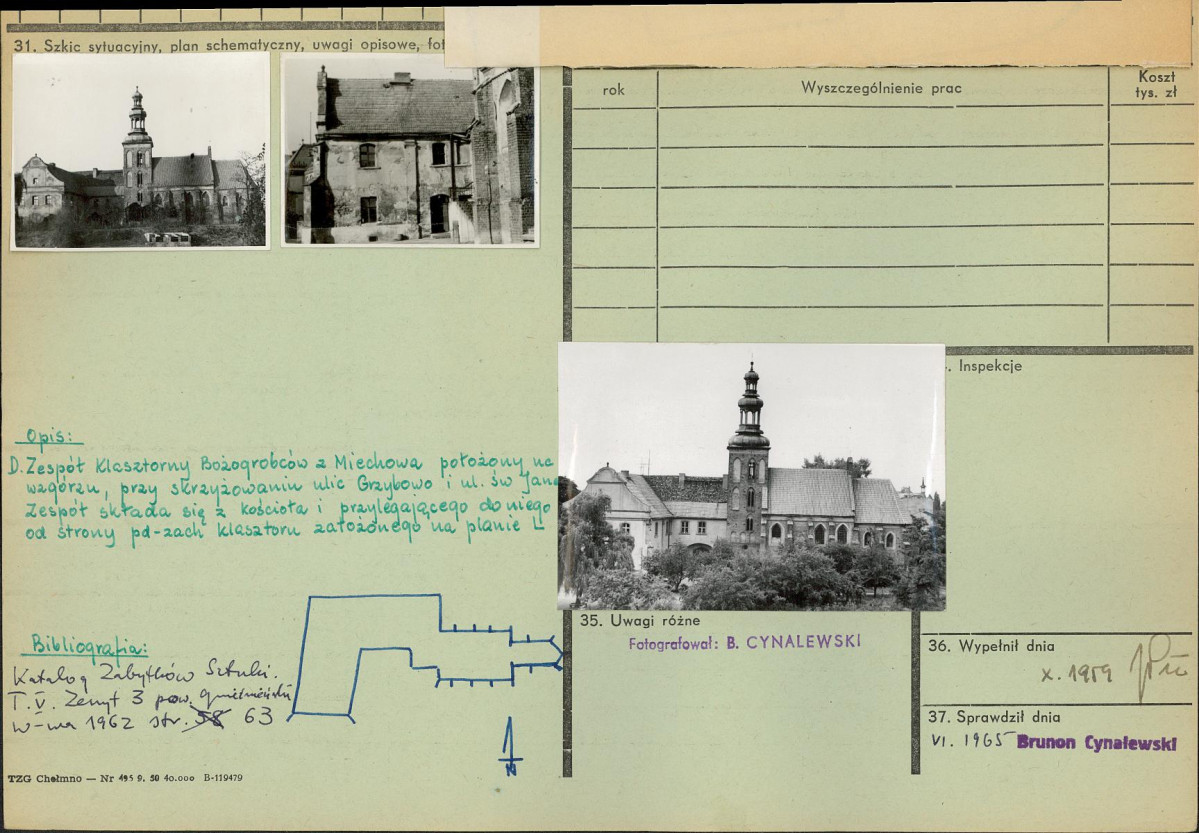 31. Szkic sytuacyjny, plan schematyczny, uwagi opisowe, fot
rok
Wyszczególnienie prac
Koszt
tys. zł
Inspekcje
Opis:
D. Zespół Klasztorny Bożogrobców z Miechowa położony na
wzgórzu, przy skrzyżowaniu ulic Grzybowo i ul. św Jana
Zespół składa się z kościoła i przylegającego do niego
od strony pd-zach klasztoru założonego na planie L
Bibliografia:
Katalog Zabytków Sztuki.
T. V. Zeszyt 3 pow. gnieźnieński
w-wa 1962 str. 58 63
N
TZG Chełmno — Nr 495 9. 50 40.000 B-119479
35. Uwagi różne
Fotografował: B. CYNALEWSKI
36. Wypełnił dnia
X. 1959
37. Sprawdził dnia
VI. 1965 Brunon Cynalewski